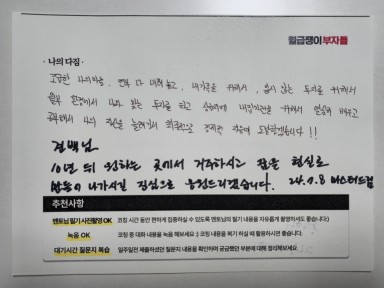 월급쟁이부자들
· 나의 다짐 ·
조급한 나의 마음, 전부 다 내려 놓고, 내가족을 위해서, 잃지 않는 투자를 위해서
나와 맞는 투자를 하고 위해서 열심히 배우고
나의 도달하겠습니다!!
10년 뒤 원하는 곳에서 거주하시고 싶은 현실로
만들어 나가시길 진심으로 응원드리겠습니다. 24.7.8
추천사항
멘토님 필기 사진촬영 OK 코칭 시간 동안 편하게 집중하실 수 있도록 멘토님의 필기 내용을 자유롭게 촬영하셔도 좋습니다:)
녹음 OK 코칭 중 대화 내용을 녹음 해보세요 :) 코칭 내용을 복기 하실 때 활용하시면 좋습니다.
대기시간 질문지 복습 일주일전 제출하셨던 질문지 내용을 확인하며 궁금했던 부분에 대해 정리해보세요